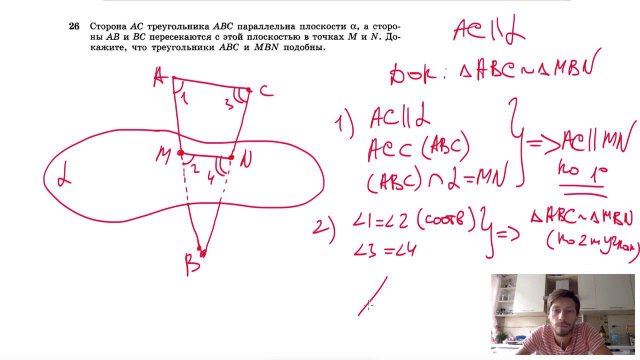 26 Сторона АС треугольника АВС параллельна плоскости α, а сторо-
ны АВ и ВС пересекаются с этой плоскостью в точках М и N. До-
кажите, что треугольники АВС и MBN подобны.
AC || α
Док: △ABC ~ △MBN
1) AC || α
AC ⊂ (ABC)
(ABC) ∩ α = MN
} => AC || MN
по 1°
2) ∠1 = ∠2 (соотв)
∠3 = ∠4
} => △ABC ~ △MBN
(по 2м углам)
A
C
1
3
M
N
2
4
α
B